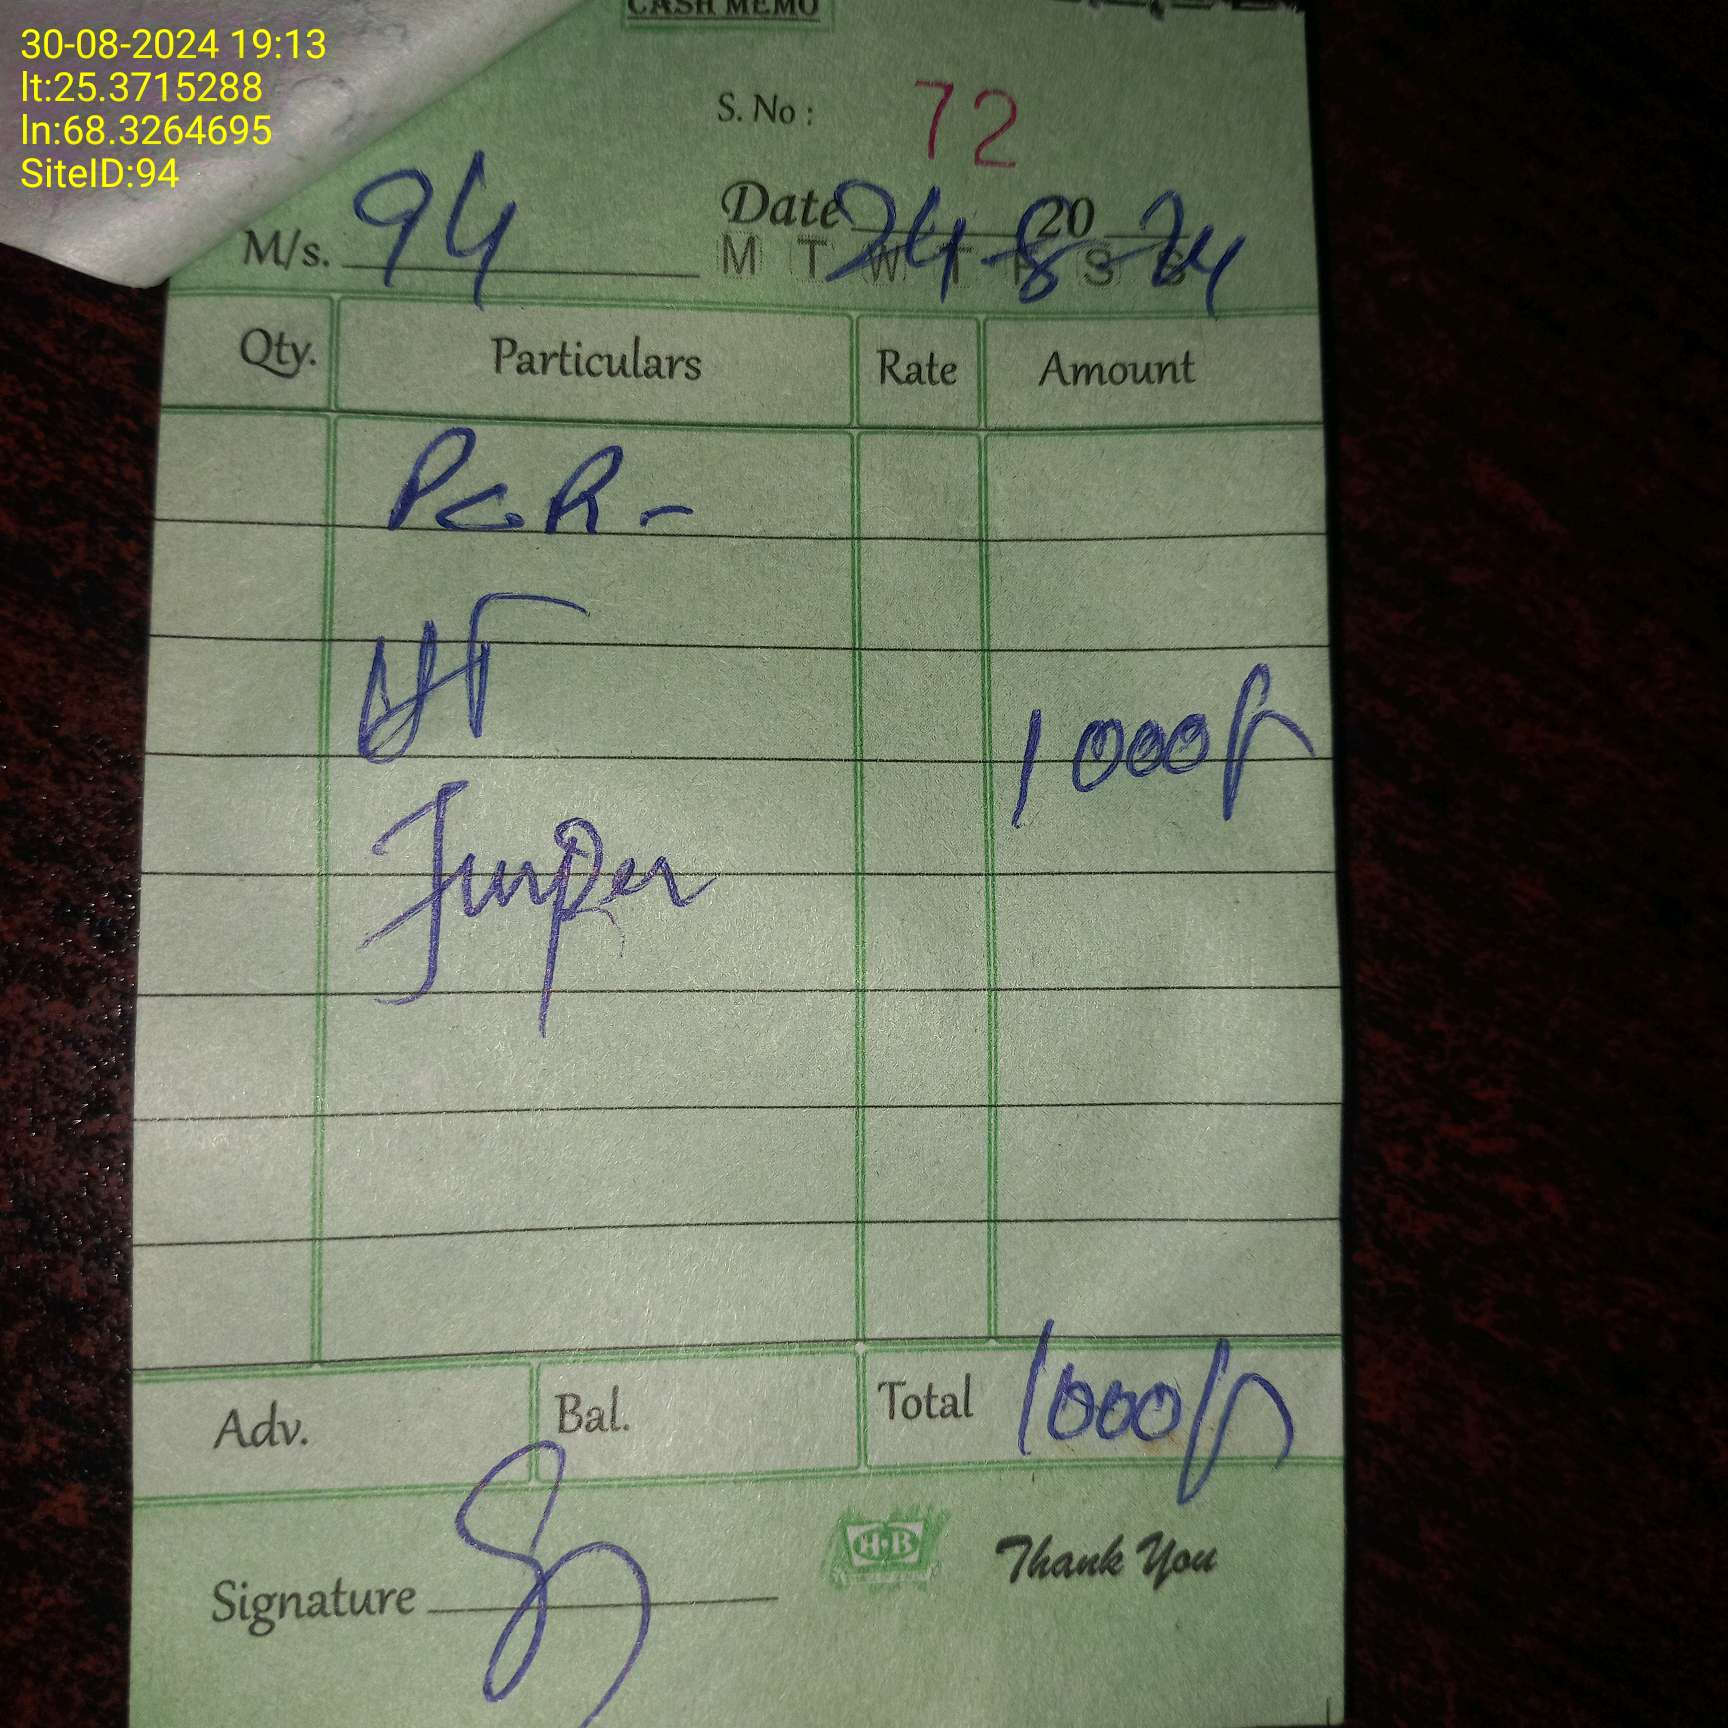 30-08-2024 19:13
lt:25.3715288
ln:68.3264695
SiteID:94
CASH MEMO
S. No : 72
M/s. 94
Date 24-8-24 20
M T W T F S S
Qty. Particulars Rate Amount
PGR-
HT
1000/-
Jumper
Adv. Bal. Total 1000/-
Signature
H·B
Thank You